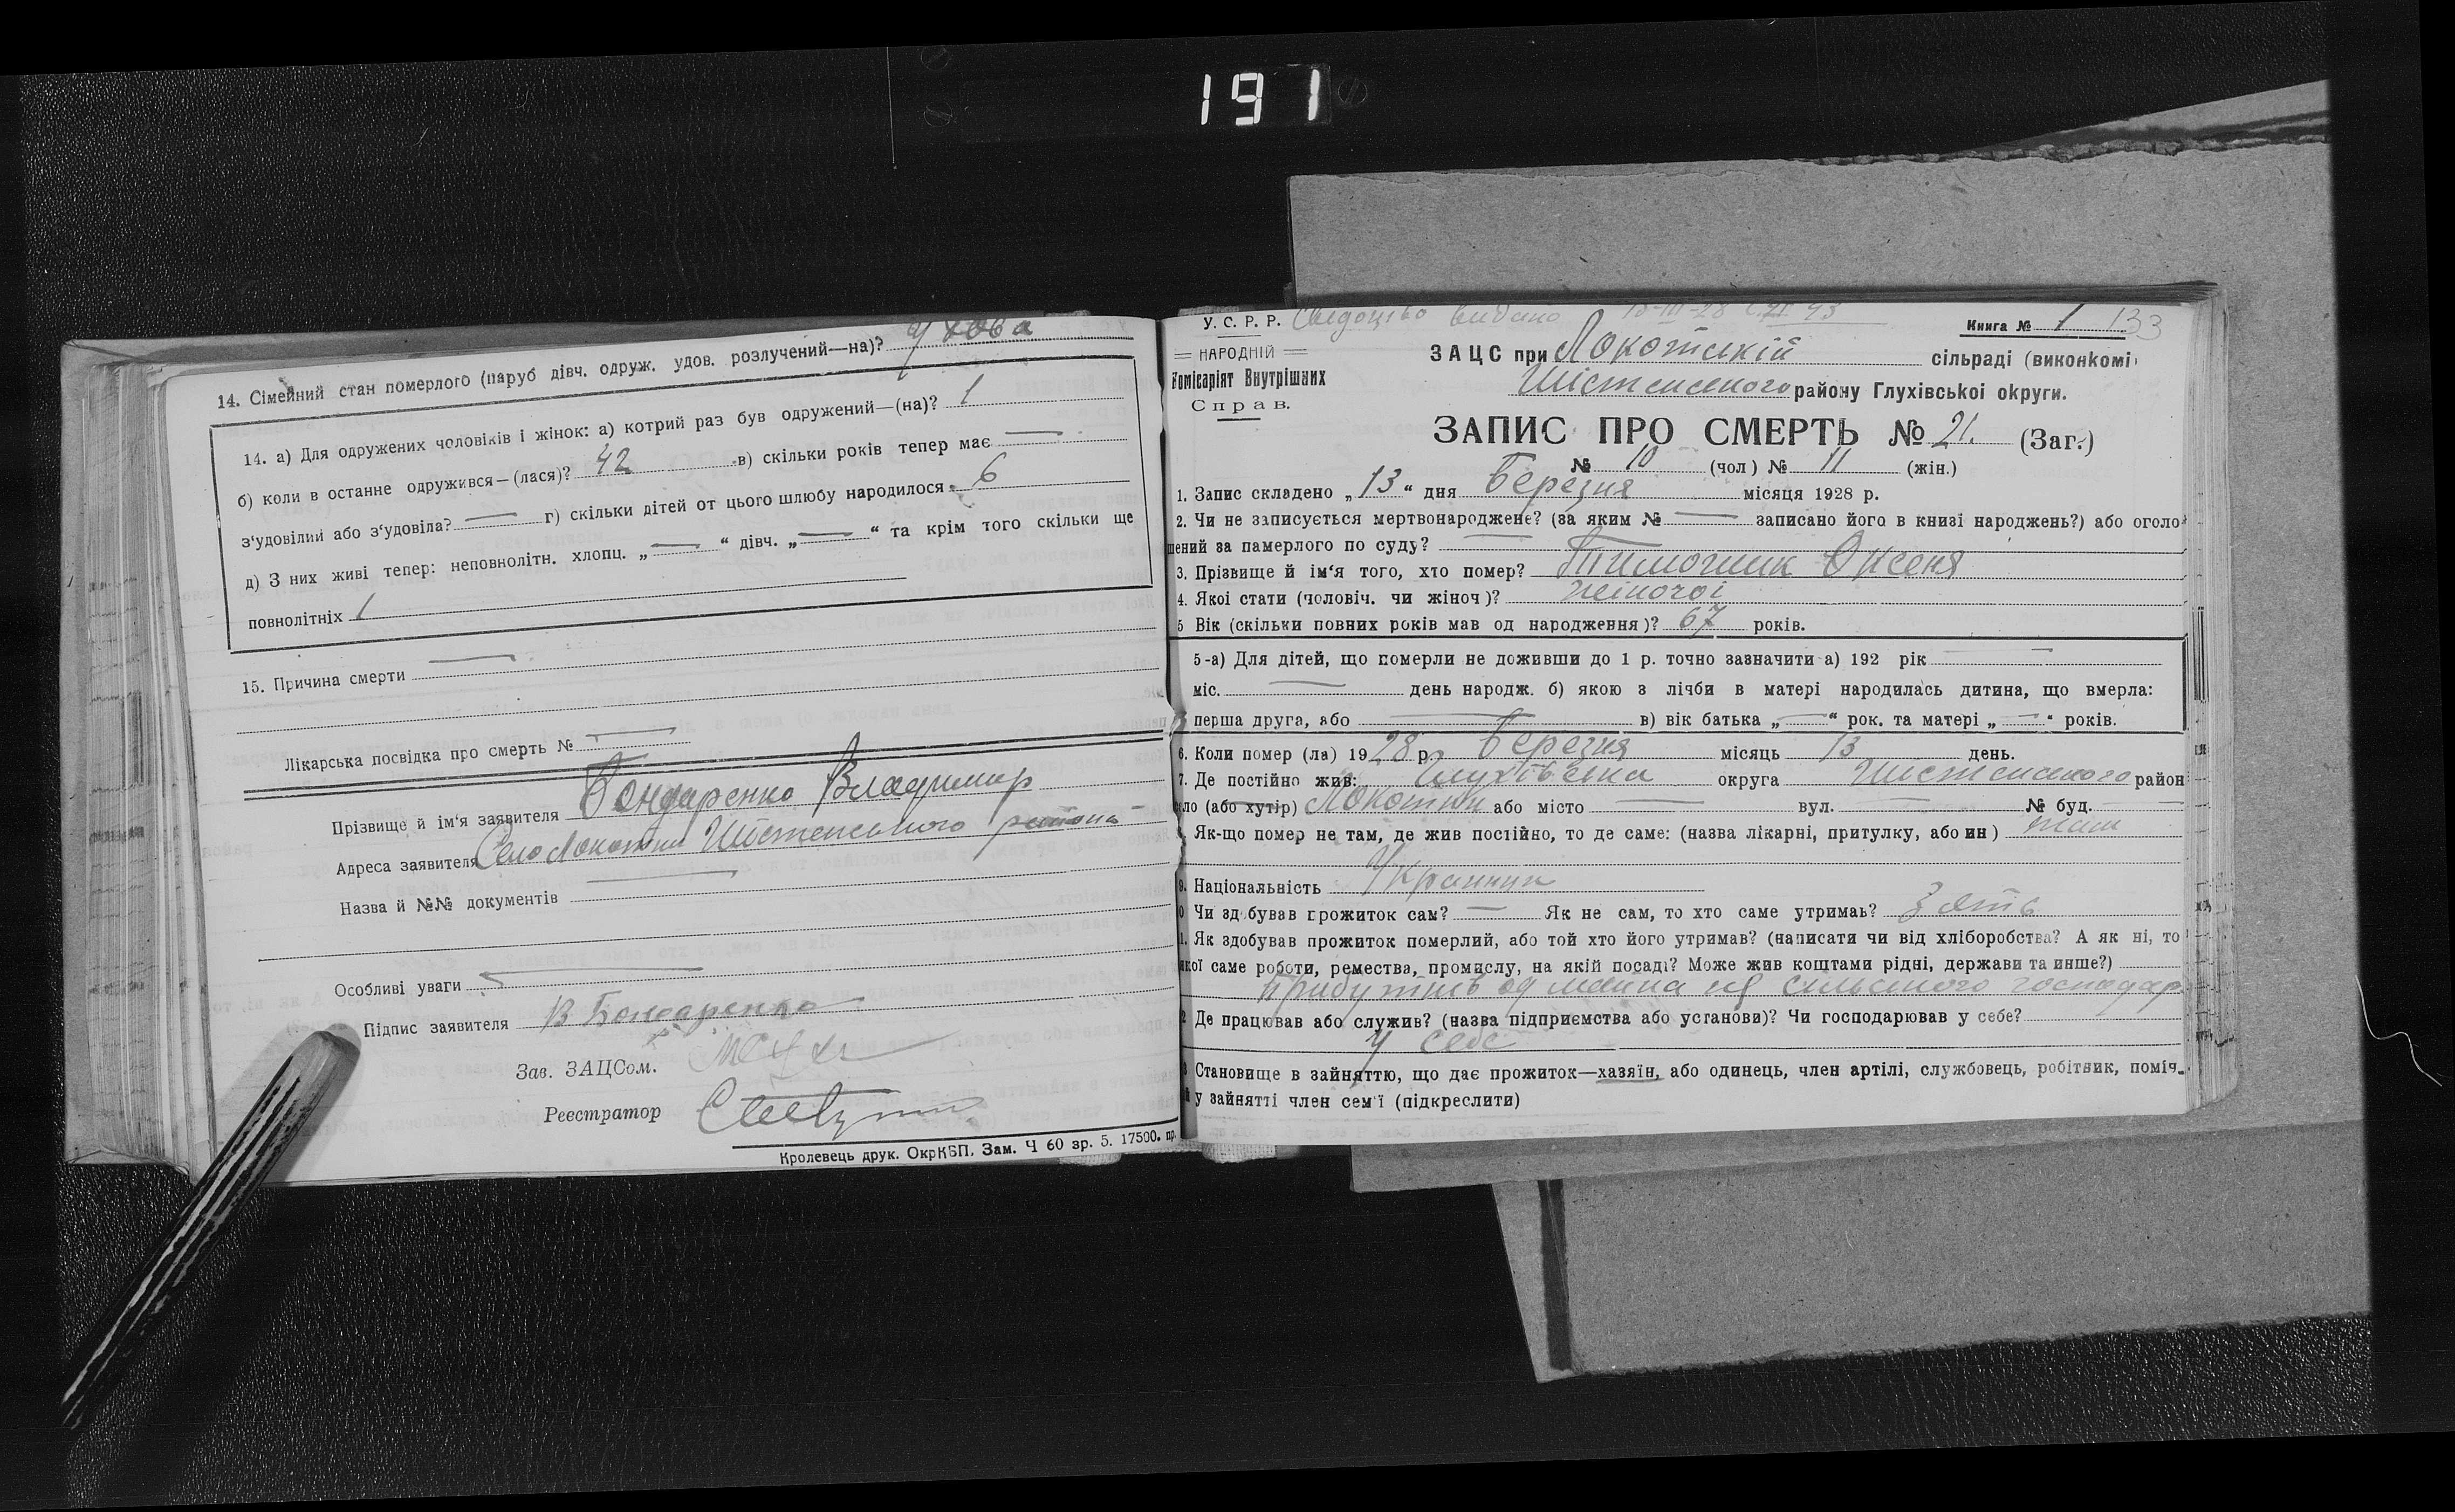 191
14. Сімейний стан померлого (паруб дівч. одруж. удов. розлучений—на)? удова
14. а) Для одружених чоловіків і жінок: а) котрий раз був одружений—(на)? 1
б) коли в останне одружився—(лася)? 42 в) скільки років тепер має —
з'удовілий або з'удовіла? — г) скільки дітей от цього шлюбу народилося 6
д) З них живі тепер: неповнолітн. хлопц. „—“ дівч. „—“ та крім того скільки ще
повнолітніх 1
15. Причина смерти —
Лікарська посвідка про смерть № —
Прізвище й ім'я заявителя Бондаренко Владимир
Адреса заявителя Село Локотки Шостенського района
Назва й №№ документів —
Особливі уваги —
Підпис заявителя В Бондаренко
Зав. ЗАЦСом.
Реєстратор
Кролевець друк. ОкрКВП. Зам. Ч 60 зр. 5. 17500. пр.
У. С. Р. Р. Свидоцтво видано 13-III-28 43
Книга № 1 133
НАРОДНІЙ
Комісаріят Внутрішних
Справ.
ЗАЦС при Локотській сільраді (виконкомі
Шістенського району Глухівської округи.
ЗАПИС ПРО СМЕРТЬ № 21. (Заг.)
№ 10 (чол) № 11 (жін.)
1. Запис складено „13“ дня Березня місяця 1928 р.
2. Чи не записується мертвонароджене? (за яким № — записано його в книзі народжень?) або оголо
шений за памерлого по суду? —
3. Прізвище й ім'я того, хто помер? Тимошик Оксеня
4. Якої стати (чоловіч. чи жіноч)? жіночої
5 Вік (скільки повних років мав од народження)? 67 років.
5-а) Для дітей, що померли не доживши до 1 р. точно зазначити а) 192 рік —
міс. — день народж. б) якою з лічби в матері народилась дитина, що вмерла:
перша друга, або — в) вік батька „—“ рок. та матері „—“ років.
6. Коли помер (ла) 1928 р. Березня місяць 13 день.
7. Де постійно жив: Глухівська округа Шистенського район
ло (або хутір) Локотки або місто — вул. — № буд. —
Як-що помер не там, де жив постійно, то де саме: (назва лікарні, притулку, або ин) там
9. Національність Украинка
Чи здобував прожиток сам? — Як не сам, то хто саме утримаь? Зять
Як здобував прожиток померлий, або той хто його утримав? (написати чи від хліборобства? А як ні, то
якої саме роботи, ремества, промислу, на якій посаді? Може жив коштами рідні, держави та инше?)
сильського господар
Де працював або служив? (назва підприємства або установи)? Чи господарював у себе?
У себе
Становище в зайняттю, що дає прожиток—хазяїн, або одинець, член артілі, службовець, робітник, поміч.
у зайнятті член сем'ї (підкреслити)